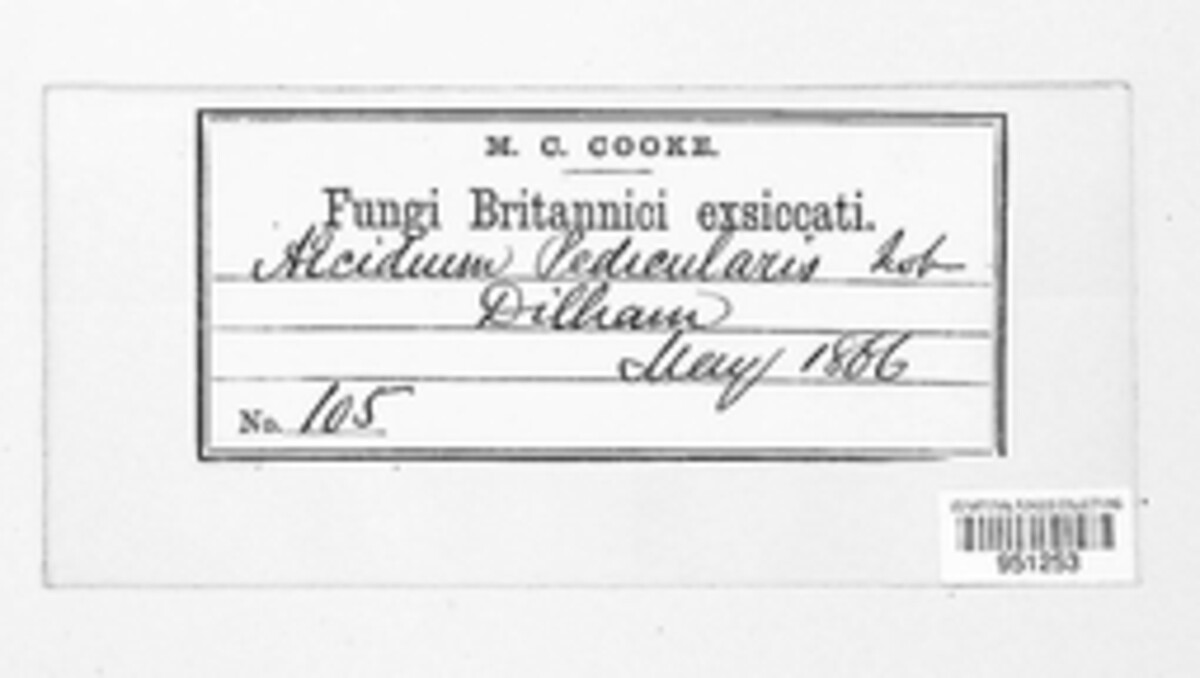 M. C. COOKE.
Fungi Britannici exsiccati.
Æcidium Pedicularis
Dilham
May 1866
No. 105
951253